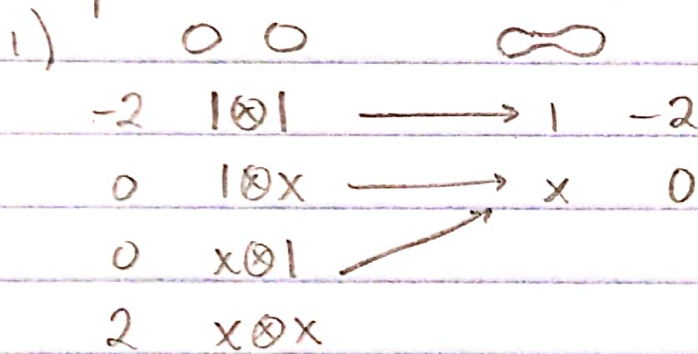 1)
-2 1⊗1 → 1 -2
0 1⊗x → x 0
0 x⊗1
2 x⊗x